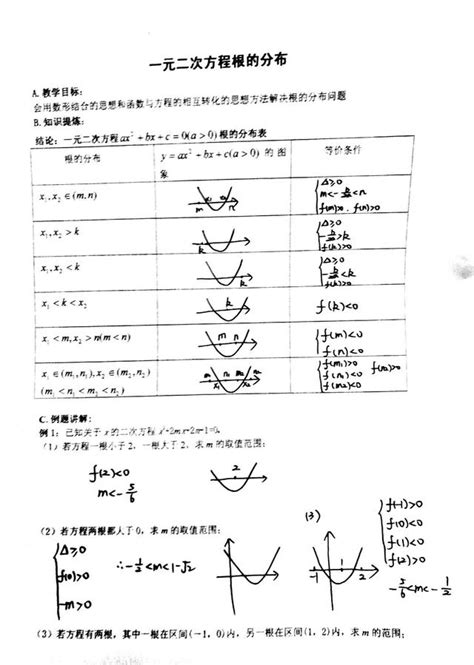 一元二次方程根的分布
A. 教学目标：
会用数形结合的思想和函数与方程的相互转化的思想方法解决根的分布问题
B. 知识提炼：
结论：一元二次方程ax²+bx+c=0(a>0)根的分布表
根的分布 y=ax²+bx+c(a>0) 的图象 等价条件
x₁,x₂∈(m,n) m x₁ x₂ n Δ≥0
m<-b/2a<n
f(m)>0, f(n)>0
x₁,x₂>k k Δ≥0
-b/2a>k
f(k)>0
x₁,x₂<k k Δ≥0
-b/2a<k
f(k)>0
x₁<k<x₂ k f(k)<0
x₁<m,x₂>n(m<n) m n f(m)<0
f(n)<0
x₁∈(m₁,n₁),x₂∈(m₂,n₂)
(m₁<n₁<m₂<n₂)
f(m₁)>0
f(n₁)<0 f(n₂)>0
f(m₂)<0
C. 例题讲解：
例1：已知关于x的二次方程x²+2mx+2m+1=0.
（1）若方程一根小于2，一根大于2，求m的取值范围；
f(2)<0 2
m<-5/6
（2）若方程两根都大于0，求m的取值范围；
Δ≥0
f(0)>0
-m>0
∴-1/2<m<1-√2
(3)
-1 1 2
f(-1)>0
f(0)<0
f(1)<0
f(2)>0
-5/6<m<-1/2
（3）若方程有两根，其中一根在区间(-1，0)内，另一根在区间(1，2)内，求m的范围；